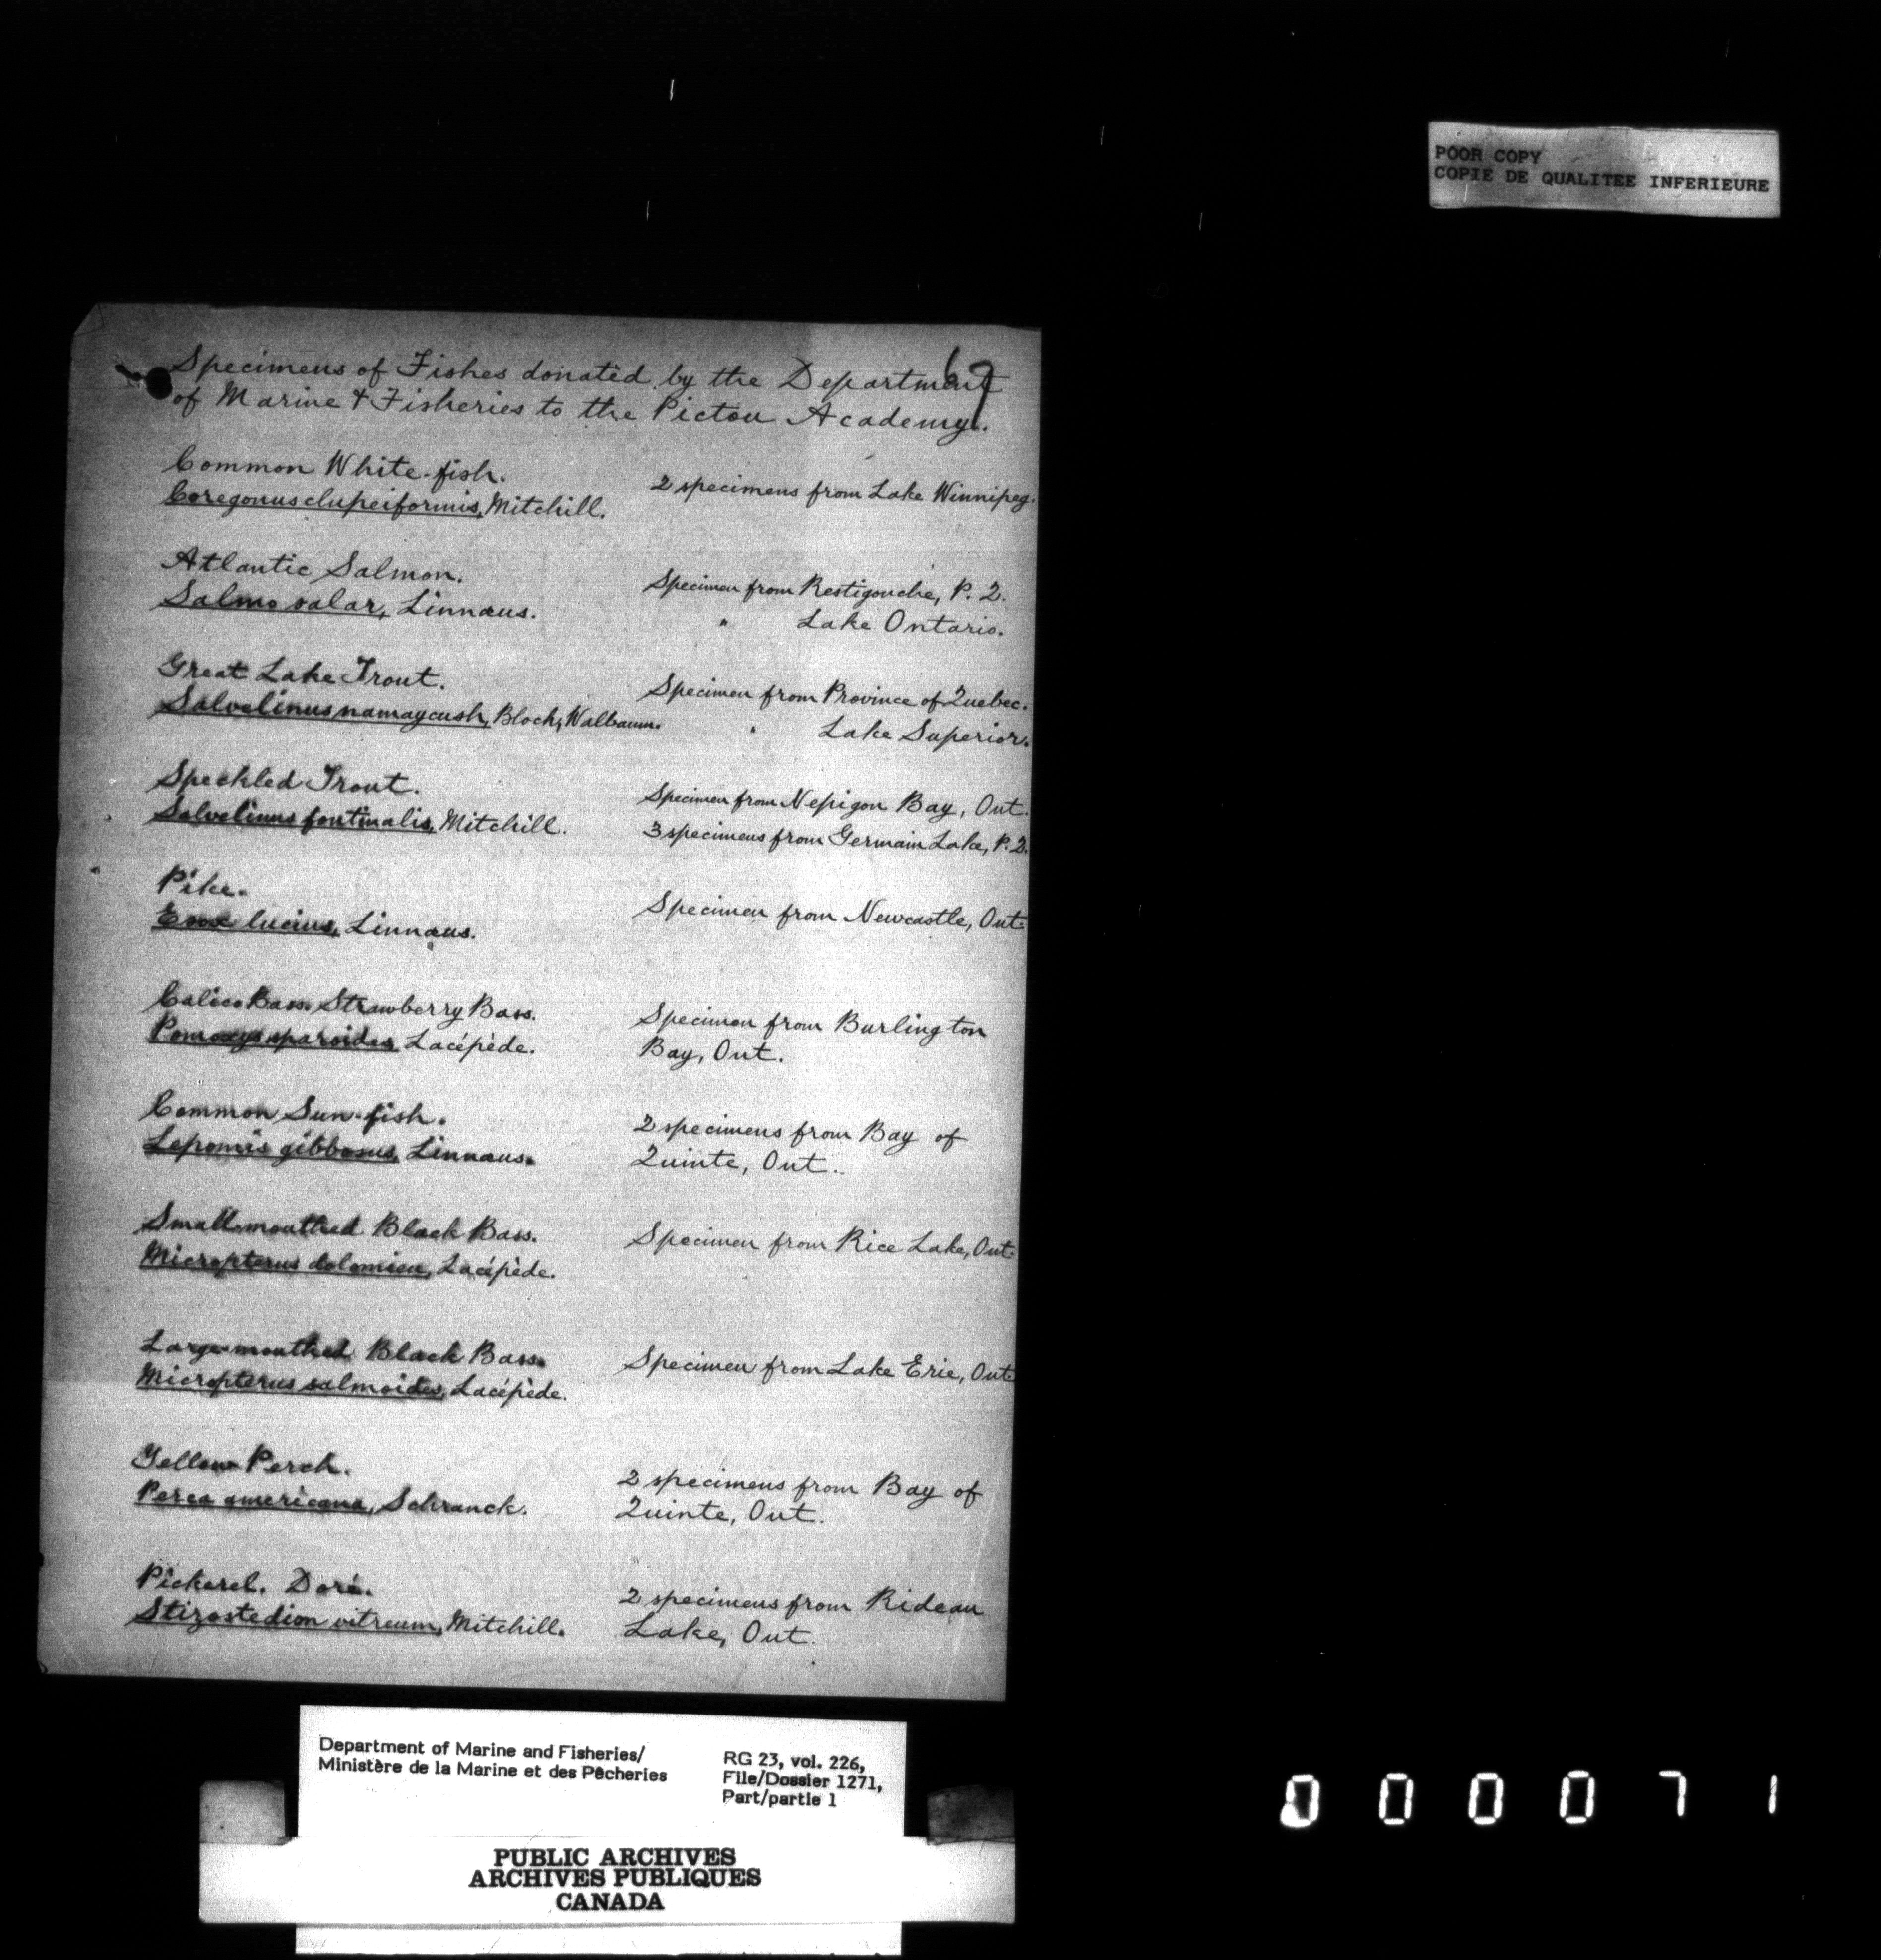 POOR COPY
COPIE DE QUALITEE INFERIEURE
69
Specimens of Fishes donated by the Department
of Marine & Fisheries to the Pictou Academy.
Common White-fish.
Coregonus clupeiformis, Mitchill.
2 specimens from Lake Winnipeg.
Atlantic Salmon.
Salmo salar, Linnæus.
Specimen from Restigouche, P. Q.
" Lake Ontario.
Great Lake Trout.
Salvelinus namaycush, Bloch, Walbaum.
Specimen from Province of Quebec.
" Lake Superior.
Speckled Trout.
Salvelinus fontinalis, Mitchill.
Specimen from Nepigon Bay, Ont.
3 specimens from Germain Lake, P. Q.
Pike.
Esox lucius, Linnæus.
Specimen from Newcastle, Ont.
Calico Bass. Strawberry Bass.
Pomoxys sparoides, Lacépède.
Specimen from Burlington
Bay, Ont.
Common Sun-fish.
Lepomis gibbosus, Linnæus.
2 specimens from Bay of
Quinte, Ont.
Small-mouthed Black Bass.
Micropterus dolomieu, Lacépède.
Specimen from Rice Lake, Ont.
Large-mouthed Black Bass.
Micropterus salmoides, Lacépède.
Specimen from Lake Erie, Ont.
Yellow Perch.
Perca americana, Schranck.
2 specimens from Bay of
Quinte, Ont.
Pickerel. Doré.
Stizostedion vitreum, Mitchill.
2 specimens from Rideau
Lake, Ont.
Department of Marine and Fisheries/
Ministère de la Marine et des Pêcheries
RG 23, vol. 226,
File/Dossier 1271,
Part/partie 1
PUBLIC ARCHIVES
ARCHIVES PUBLIQUES
CANADA
000071